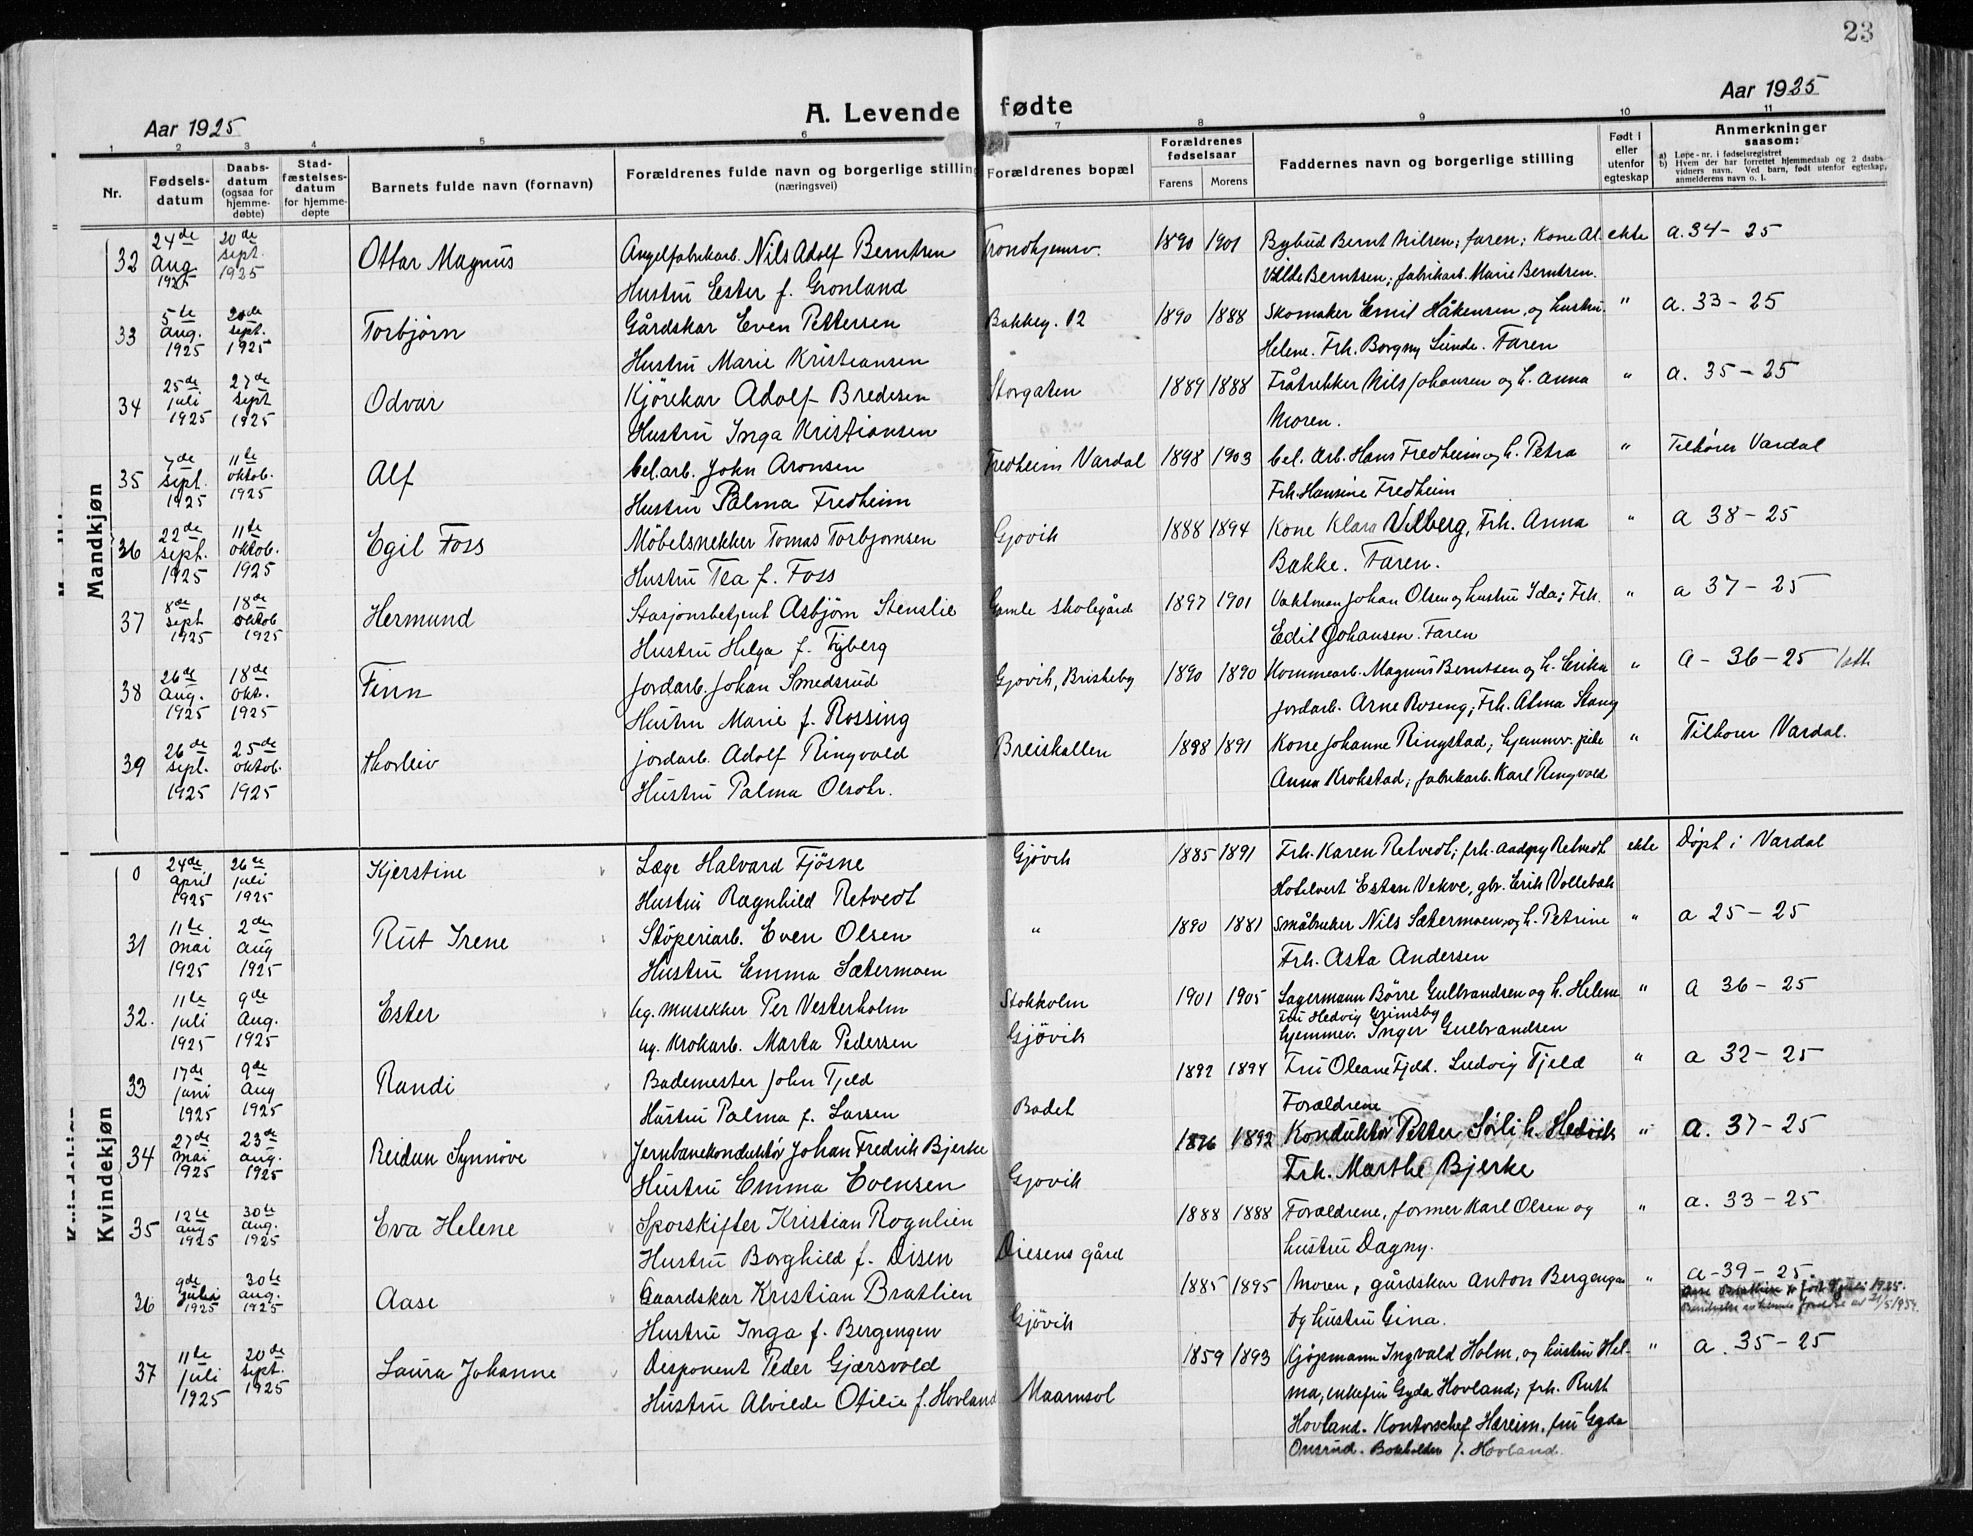 23
Aar 1925
A. Levende fødte
Aar 1925
1 2 3 4 5 6 7 8 9 10 11
Nr.
Fødsels-
datum
Daabs-
datum
(ogsaa for
hjemme-
døbte)
Stad-
fæstelses-
datum
for hjemme-
døpte
Barnets fulde navn (fornavn)
Forældrenes fulde navn og borgerlige stilling
(næringsvei)
Forældrenes bopæl
Forældrenes
fødselsaar
Farens Morens
Faddernes navn og borgerlige stilling
Født i
eller
utenfor
egteskap
Anmerkninger
saasom:
a) Løpe-nr. i fødselsregistret
b) Hvem der har forrettet hjemmedaab og 2 daabs-
vidners navn. Ved barn, født utenfor egteskap,
anmelderens navn o. l.
Mandkjøn
32 24de Aug. 1925 20de sept. 1925 Ottar Magnus Angelfabrikarb. Nils Adolf Berntsen Trondhjemsv. 1890 1901 Bybud Bernt Nilsen; faren; Kone Al. ekte a. 34-25
Hustru Ester f. Grønland Berntsen; fabrikarb. Marie Berntsen.
33 5te aug. 1925 20de sept. 1925 Torbjørn Gårdskar Even Pettersen Bakkeg. 12 1890 1888 Skomaker Emil Håkensen, og hustru " a. 33-25
Hustru Marie Kristiansen Helene. Frk. Borgny Lunde. Faren
34 25de juli 1925 27de sept 1925 Odvar Kjørekar Adolf Bredesen Storgaten 1889 1888 Nils Johansen og h. Anna " a. 35-25
Hustru Inga Kristiansen Moren.
35 7de sept. 1925 11te oktob. 1925 Alf Cel.arb. John Aronsen Fredheim Vardal 1898 1903 Cel. Arb. Hans Fredheim og h. Petra " Tilhører Vardal
Hustru Palma Fredheim Frk. Hansine Fredheim
36 22de sept. 1925 11te oktob. 1925 Egil Foss Møbelsnekker Tomas Torbjørnsen Gjøvik 1888 1894 Kone Klara Vilberg, Frk. Anna " a 38-25
Hustru Tea f. Foss Bakke. Faren.
37 8de sept 1925 18de oktob 1925 Hermund Stasjonsbetjent Asbjørn Stenslie Gamle skolegård 1897 1901 Vaktman Johan Olsen og hustru Ida; Frk. " a 37-25
Hustru Helga f. Fyberg Edit Johansen. Faren
38 26de Aug. 1925 18de okt. 1925 Finn Jordarb. Johan Smedsrud Gjøvik, Briskeby 1890 1890 Kommearb. Magnus Berntsen og h. Erika " a-36-25
Hustru Marie f. Rossing jordarb. Arne Roseng; Frk. Alma Stang
39 26de sept. 1925 25de oktob. 1925 Thorleiv Jordarb. Adolf Ringvold Breiskallen 1898 1891 Kone Johanne Ringstad; hjemmev. pike " Tilhører Vardal.
Hustru Palma Olsdtr. Anna Krokstad; fabrikarb. Karl Ringvold
Kvindekjøn
0 24de april 1925 26te juli 1925 Kjerstine Læge Halvard Fjøsne Gjøvik 1885 1891 Frk. Karen Retvedt; frk. Aadny Retvedt ekte Døpt i Vardal
Hustru Ragnhild Retvedt Hotelvert Esten Vekve, gbr. Erik Vollebak
31 11te mai 1925 2den aug 1925 Rut Irene Støperiarb. Even Olsen " 1890 1881 Småbruker Nils Sætermoen, og h. Petrine " a 25-25
Hustru Emma Sætermoen Frk. Asta Andersen
32. 11te juli 1925 9de Aug. 1925 Ester Ug. musikker Per Vesterholm Stokholm 1901 1905 Lagermann Børre Gulbrandsen og h. Helene " a 36-25
Fru Hedvig Grimsby
ug. Krokarb. Marta Pedersen Gjøvik hjemmev. Inger Gulbrandsen
33 17de juni 1925 9de Aug 1925 Randi Bademester John Fjeld Badet 1892 1894 Fru Oleane Fjeld. Ludvig Fjeld " a 32-25
Hustru Palma f. Larsen Forældrene
34 27de mai 1925 23de aug. 1925 Reidun Synnøve Jernbanekonduktør Johan Fredrik Bjerke Gjøvik 1896 1892 Konduktør Petter Sørli h. Hedvik " a. 37-25
Hustru Emma Evensen Frk. Marthe Bjerke
35 12te aug 1925 30te aug. 1925 Eva Helene Sporskifter Kristian Rognlien Diesens gård 1888 1888 Forældrene, former Karl Olsen og " a. 33-25
Hustru Borghild f. Disen hustru Dagny.
36 9de juli 1925 30te aug. 1925 Aase Gaardskar Kristian Bratlien Gjøvik 1885 1895 Moren, gårdskar Anton Bergengen " a-39-25.
Hustru Inga f. Bergengen og hustru Gina.
37 11te juli 1925 20de sept. 1925 Laura Johanne Disponent Peder Gjærsvold Maamsol 1859 1893 Kjøpmann Ingvald Holm, og hustru Hel- " a. 35-25
Hustru Alvilde Otilie f. Hovland ma, enkefru Gyda Hovland; frk. Ruth
Hovland. Kontorchef Hareim. fru Gyda
Onsrud. Bokholder J. Hovland.